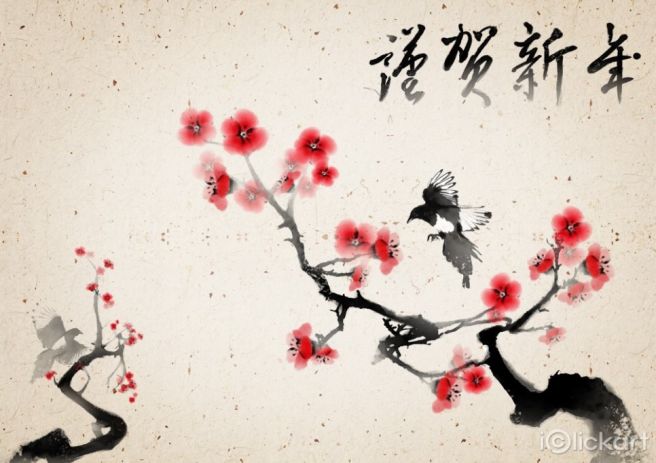 謹賀新年
iclickart